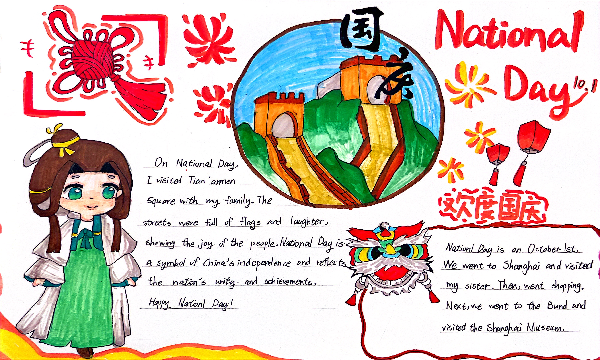 国庆
National
Day 10.1
欢度国庆
On National Day,
I visited Tian'anmen
Square with my family. The
streets were full of flags and laughter,
showing the joy of the people. National Day is
a symbol of China's independence and reflects
the nation's unity and achievements.
Happy Nationl Day!
Nationl Day is on October 1st.
We went to Shanghai and visited
my sister. Then, went shopping.
Next, we went to the Bund and
visited the Shanghai Museum.